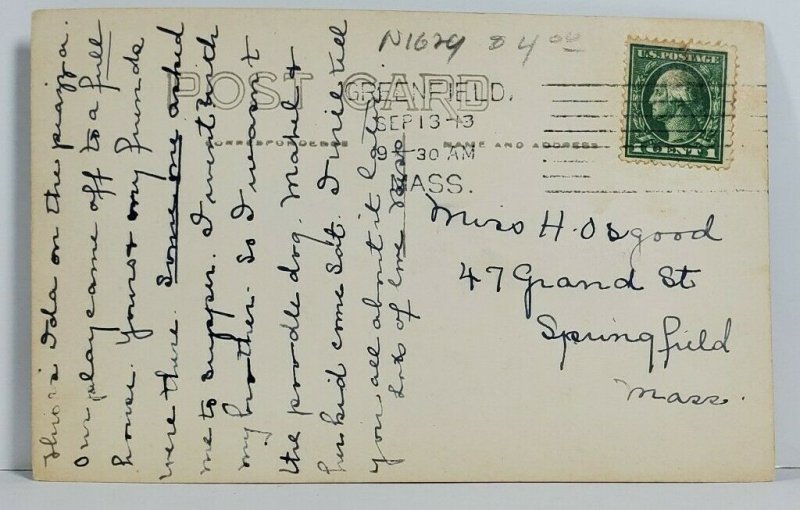 N1629 $4.00
POST CARD
CORRESPONDENCE
NAME AND ADDRESS
GREENFIELD,
SEP 13-13
9-30 AM
MASS.
U.S. POSTAGE
1 CENT 1
This is Ida on the piazza.
Our play came off to a full
house. Yours & my friends
were there. Some one asked
me to supper. I went with
my brother. So I mean t
the poodle dog. Mabel &
her kid come Sat. I will tell
you all about it later.
Lots of love
Miss H. Osgood
47 Grand St
Springfield
Mass.